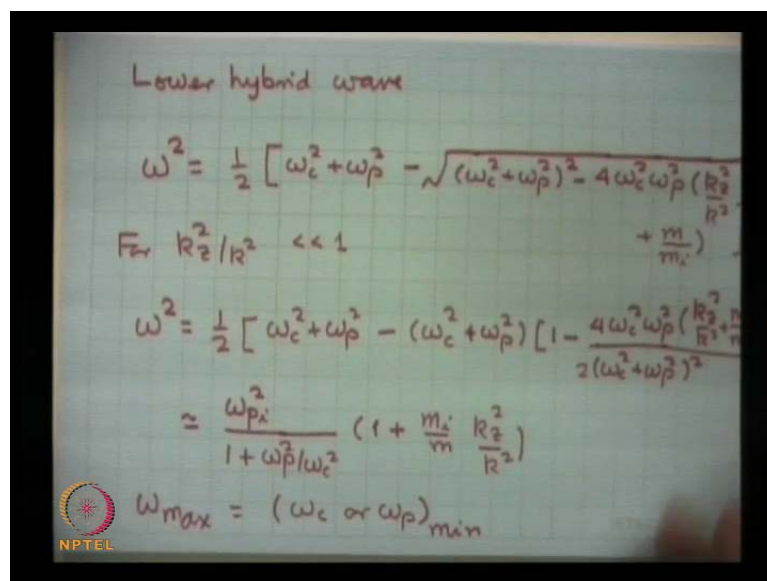 Lower hybrid wave
ω² = ½ [ω_c² + ω_p² − √(ω_c² + ω_p²)² − 4ω_c²ω_p² (k_z²/k²
For k_z²/k² << 1 + m/m_i)
ω² = ½ [ω_c² + ω_p² − (ω_c² + ω_p²) [1 − 4ω_c²ω_p² (k_z²/k² + / 2(ω_c² + ω_p²)²
≃ ω_pi² / 1 + ω_p²/ω_c² (1 + m_i/m k_z²/k²)
ω_max = (ω_c or ω_p)_min
NPTEL